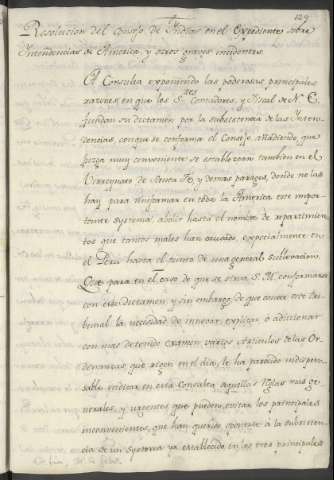 129
Resolucion del Consejo de Indias en el Expediente sobre
Intendencias de America, y otros graves incidentes.
A Consulta exponiendo las poderosas principales
razones en que los S.res Contadores, y Fiscal de N. E.
fundan su dictamen por la subsistencia de las Inten-
cias, con que se conforma el Consejo, añadiendo que
juzga muy conveniente se establezcan tambien en el
Virreynato de Santa Fe, y demas parages, donde no las
hay para uniformar en toda la America este impor-
tante systema, abolir hasta el nombre de repartimien-
tos que tantos males han causado, especialmente en
el Perú hasta el punto de una general sublevacion.
Que para en el caso de que se sirva S. M. conformarse
con este dictamen y sin embargo de que conoce este Tri-
bunal la necesidad de innovar, explicar, ó adicionar
con mas detenido examen varios Articulos de las Or-
denanzas que rigen en el dia, le ha parecido indispen-
sable indicar en esta Consulta aquellas Reglas mas ge-
nerales, y urgentes que pueden evitar los principales
inconvenientes, que han querido oponerse a la subsisten-
cia de un systema ya establecido en las tres principales